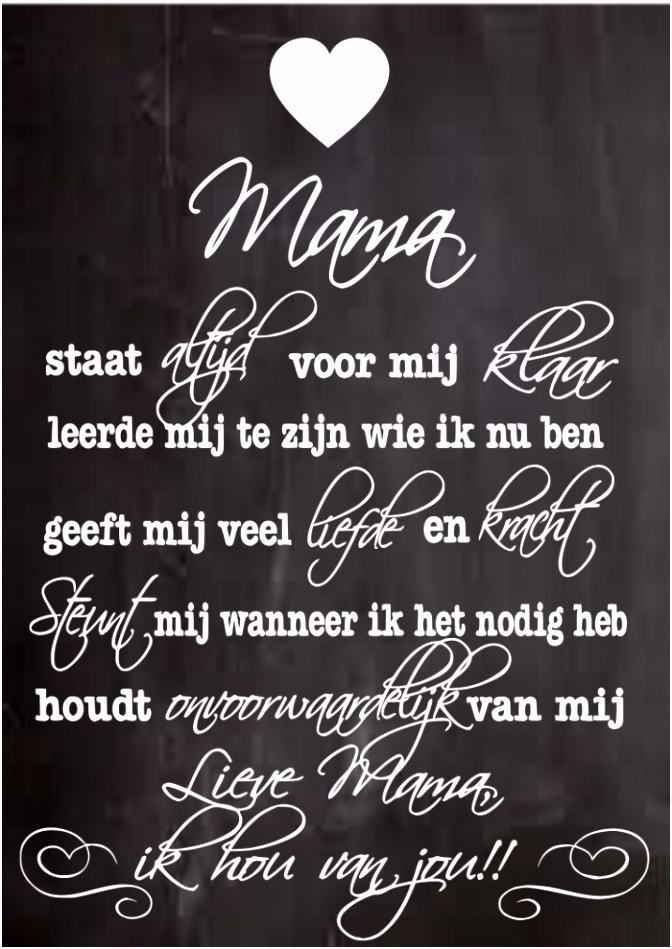 Mama
staat altijd voor mij klaar
leerde mij te zijn wie ik nu ben
geeft mij veel liefde en kracht
Steunt mij wanneer ik het nodig heb
houdt onvoorwaardelijk van mij
Lieve Mama,
ik hou van jou!!